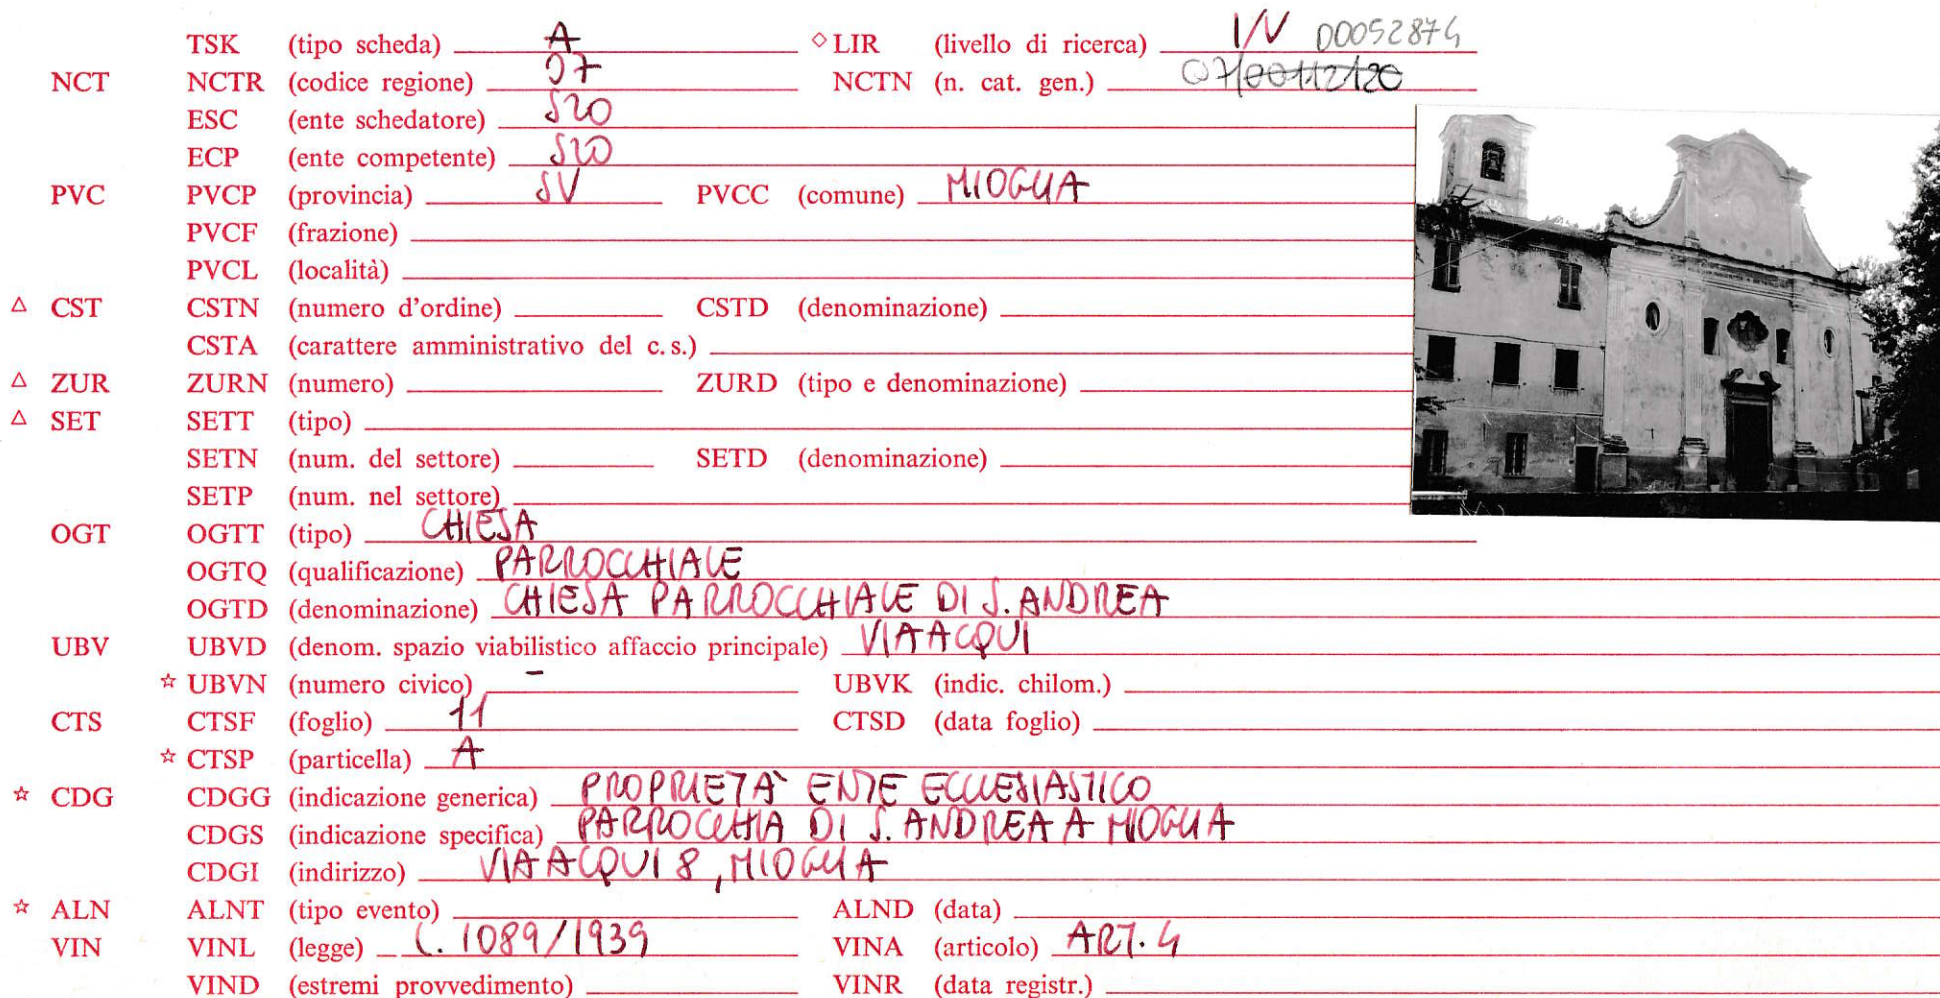 TSK (tipo scheda) A ◇ LIR (livello di ricerca) I/V 00052874
NCT NCTR (codice regione) 07 NCTN (n. cat. gen.) 07/00112120
ESC (ente schedatore) S20
ECP (ente competente) S20
PVC PVCP (provincia) SV PVCC (comune) MIOGLIA
PVCF (frazione)
PVCL (località)
△ CST CSTN (numero d'ordine) CSTD (denominazione)
CSTA (carattere amministrativo del c. s.)
△ ZUR ZURN (numero) ZURD (tipo e denominazione)
△ SET SETT (tipo)
SETN (num. del settore) SETD (denominazione)
SETP (num. nel settore)
OGT OGTT (tipo) CHIESA
OGTQ (qualificazione) PARROCCHIALE
OGTD (denominazione) CHIESA PARROCCHIALE DI S. ANDREA
UBV UBVD (denom. spazio viabilistico affaccio principale) VIA ACQUI
☆ UBVN (numero civico) - UBVK (indic. chilom.)
CTS CTSF (foglio) 11 CTSD (data foglio)
☆ CTSP (particella) A
☆ CDG CDGG (indicazione generica) PROPRIETA' ENTE ECCLESIASTICO
CDGS (indicazione specifica) PARROCCHIA DI S. ANDREA A MIOGLIA
CDGI (indirizzo) VIA ACQUI 8, MIOGLIA
☆ ALN ALNT (tipo evento) ALND (data)
VIN VINL (legge) L. 1089/1939 VINA (articolo) ART. 4
VIND (estremi provvedimento) VINR (data registr.)